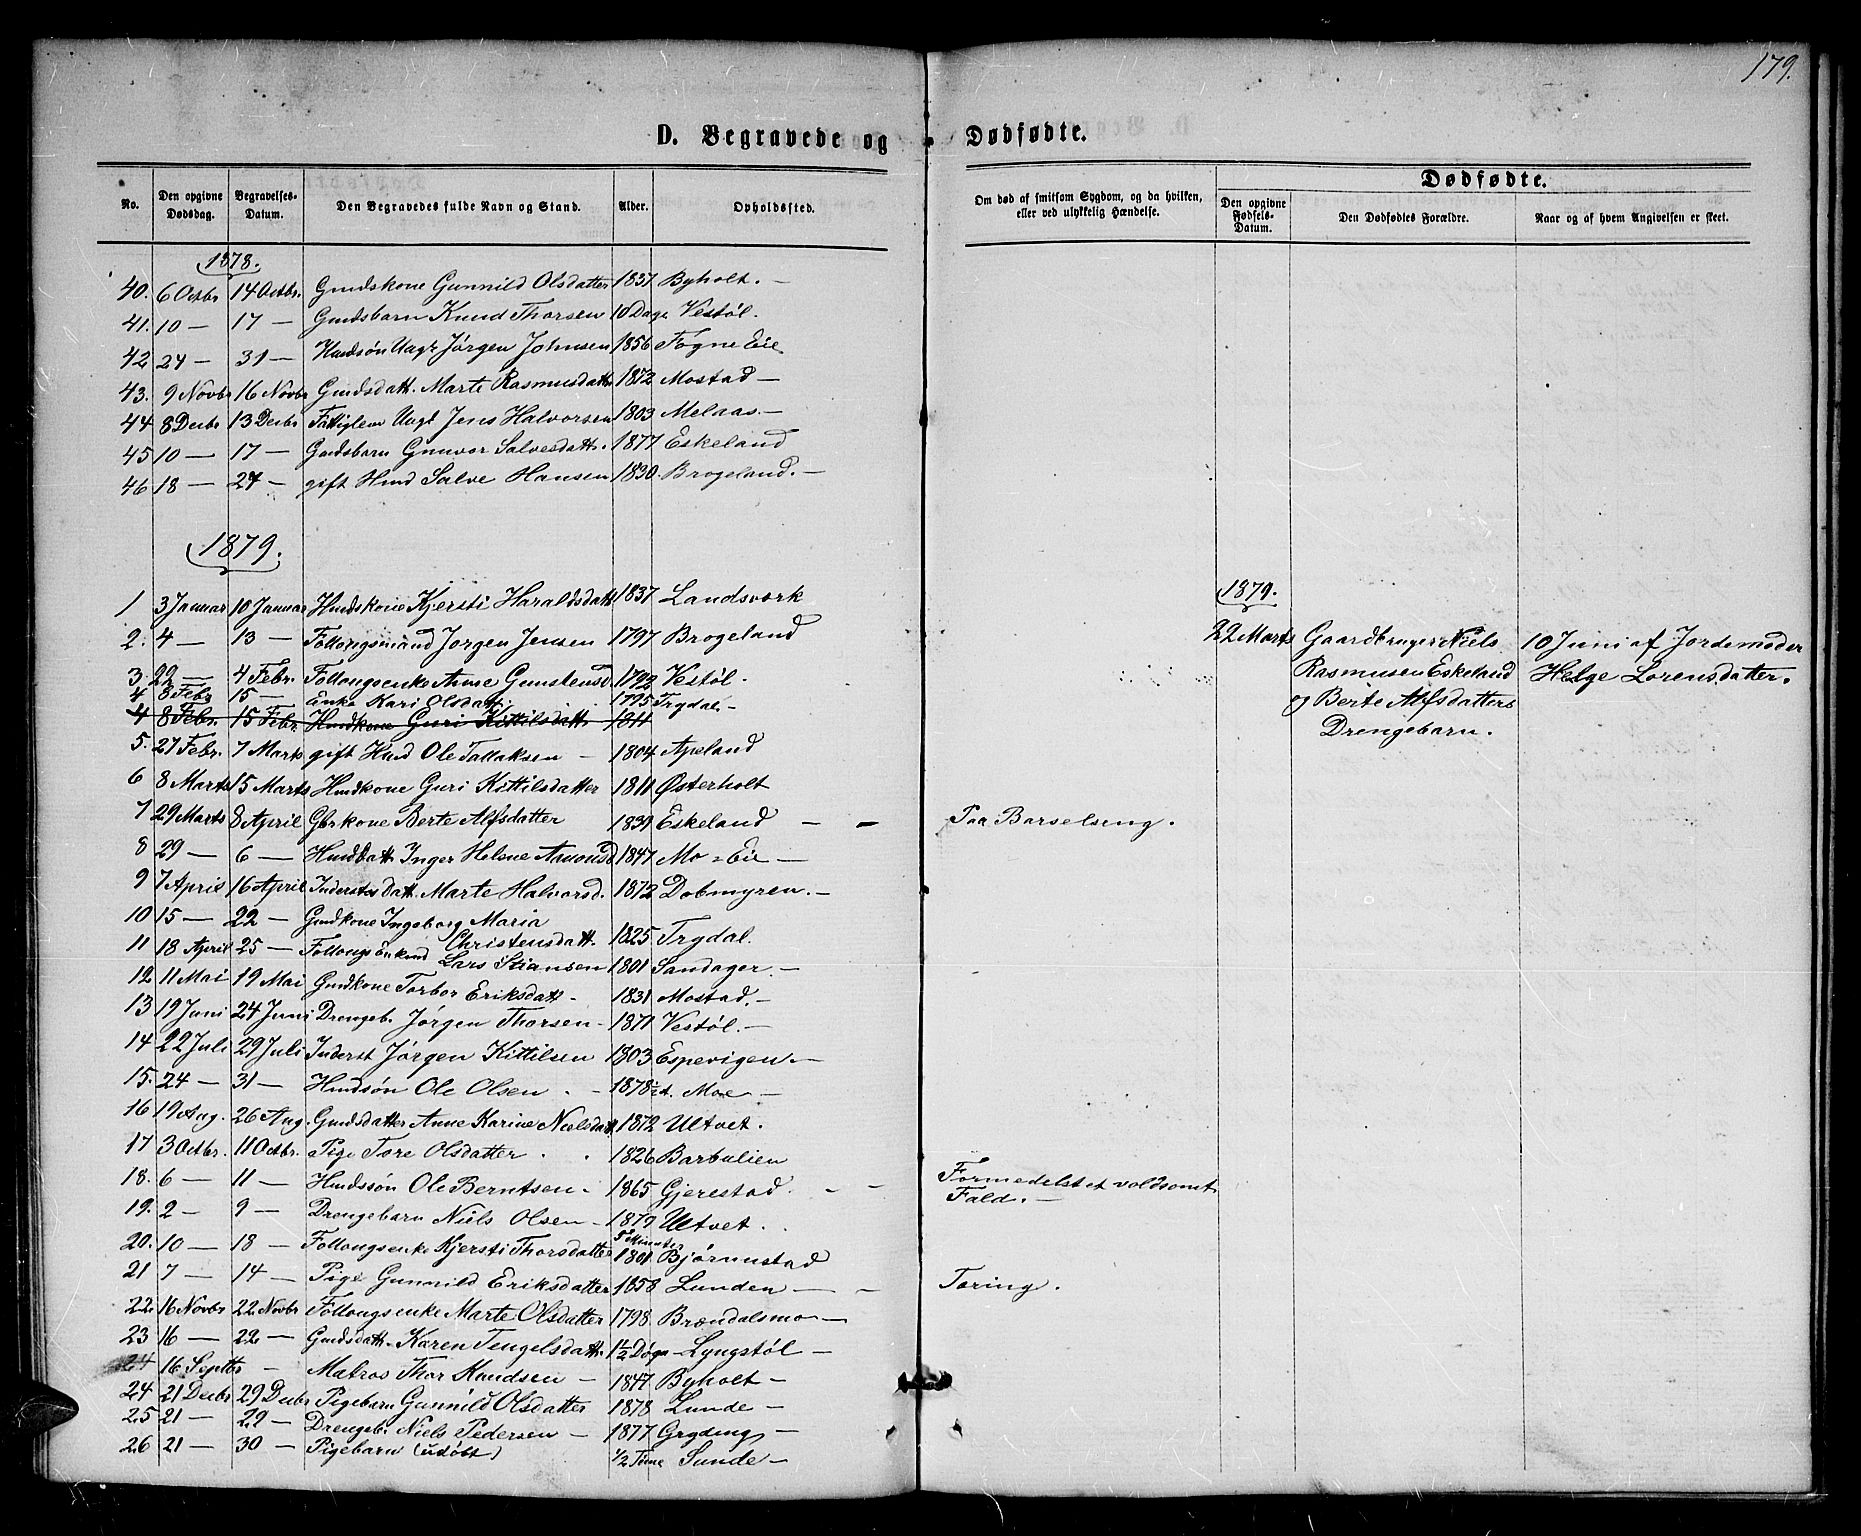 179.
D. Begravede og Dødfødte.
No. Den opgivne Dødsdag. Begravelses-Datum. Den Begravedes fulde Navn og Stand. Alder. Opholdssted. Om død af smitsom Sygdom, og da hvilken, eller ved ulykkelig Hændelse. Dødfødte. Den opgivne Fødsels-Datum. Den Dødfødtes Forældre. Naar og af hvem Angivelsen er skeet.
1878.
40. 6 Octbr 14 Octbr. Gmdskone Gunnild Olsdatter 1837 Byholt. —
41. 10 — 17 — Gmdsbarn Knud Thorsen 10 Dage Vestøl.
42 24 — 31 — Husdsøn Ungk Jørgen Johnsen 1856 Fogne Eie
43. 9 Novbr 16 Novbr Gmdsdatt. Marte Rasmusdatt 1872 Mostad —
44 8 Decbr 13 Decbr Fattiglem Ungk Jens Halvorsen 1803 Melaas. —
45 10 — 17 — Gmdsbarn Gunvor Salvesdatt. 1877 Eskeland
46 18 — 27 — gift Hmd Salve Hansen 1830. Brogeland. —
1879.
1 3 Januar 10 Januar Hmdskone Kjersti Haraldsdatt 1837 Landsværk
2. 4 — 13 — Follougsmand Jørgen Jensen 1797 Brogeland
3 22 — 4 Febr. Follougsenke Anne Gunstensd. 1792 Vestøl.
4 8 Febr 15 — Enke Kari Olsdatt 1795 Trydal. —
4 8 Febr. 15 Febr. Hmdkone Guri Kittilsdatt 1811
5. 27 Febr. 7 Marts gift Hmd Ole Tallaksen — 1804 Apeland
6 8 Marts 15 Marts Hmdkone Guri Kittilsdatter 1811 Østerholt
7 29 Marts 8 April Gbrkone Berte Alfsdatter 1839 Eskeland — — Paa Barselseng.
8 29 — 6 — Hmdsdatt Inger Helene Amonsd 1847 Mo - Eie —
9 7 April 16 April Inderstes Datt. Marte Halvorsd. 1872 Dobmyren. —
10 15 — 22 — Gmdkone Ingeborg Maria
Christensdatt. 1825 Trydal.
11 18 April 25 — Follougs Enkmd Lars Stiansen 1801 Sandager. —
12 11 Mai 19 Mai Gmdkone Torbor Eriksdatt — 1831 Mostad. —
13 19 Juni 24 Juni Drengeb. Jørgen Thorsen — 1871 Vestøl. —
14 22 Juli 29 Juli Inderst Jørgen Kittilsen 1803 Espevigen. —
15. 24 — 31 — Hmdsøn Ole Olsen . — 1878 Moe —
16 19 Aug. 26 Aug. Gmdsdatter Anne Karine Nielsdatt 1872 Ultvet.
17 3 Octbr. 11 Octbr. Pige Tore Olsdatter . . 1826 Barbulien
18. 6 — 11 — Hmdssøn Ole Berntsen — 1865 Gjerestad. — — Formedelst et voldsomt
Fald. —
19. 2 — 9 — Drengebarn Niels Olsen — 1879 Ultvet. .
5 Minutter
20. 10 — 18 — Follougsenke Kjersti Thorsdatter 1801 Bjørnnstad
21 7 — 14 — Pige Gunnild Eriksdatter 1858 Lunden — — Tæring.
22. 16 Novbr 22 Novbr Follougsenke Marte Olsdatter 1798. Brændalsmo —
23 16 — 22 — Gmdsdatt. Karen Tengelsdatt. 1½ Døgn Lyngstøl —
24 16 Septbr — Matros Thor Knudsen — 1847 Byholt —
24 21 Decbr 29 Decbr Pigebarn Gunnild Olsdatter 1878 Lunde —
25 21 — 29 — Drengeb. Niels Pedersen — 1877 Gryding —
26 21 — 30 — Pigebarn (udøbt) ½ Time Sunde —
1879.
22 Marts Gaardbruger Niels
Rasmusen Eskeland
og Berte Alfsdatters
Drengebarn.
10 Juni af Jordemoder
Helge Lorensdatter.